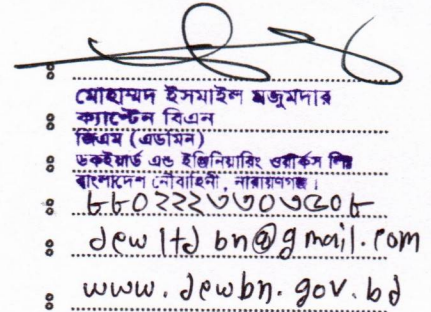 মোহাম্মদ ইসমাইল মজুমদার
ক্যাপ্টেন বিএন
জিএম (এডমিন)
ডকইয়ার্ড এন্ড ইঞ্জিনিয়ারিং ওয়ার্কস লিঃ
বাংলাদেশ নৌবাহিনী, নারায়ণগঞ্জ।
: ৮৮০২২২৩৩০৩৫০৮
: dewltdbn@gmail.com
: www.dewbn.gov.bd